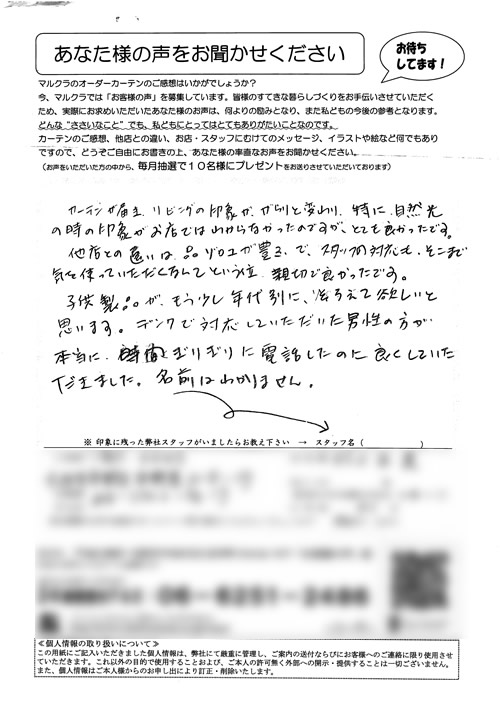 あなた様の声をお聞かせください
お待ち
してます！
マルクラのオーダーカーテンのご感想はいかがでしょうか？
今、マルクラでは「お客様の声」を募集しています。皆様のすてきな暮らしづくりをお手伝いさせていただく
ため、実際にお求めいただいたあなた様のお声は、何よりの励みとなり、また私どもの今後の参考となります。
どんな“ささいなこと”でも、私どもにとってはとてもありがたいことなのです。
カーテンのご感想、他店との違い、お店・スタッフにむけてのメッセージ、イラストや絵など何でもあり
ですので、どうぞご自由にお書きの上、あなた様の率直なお声をお聞かせください。
（お声をいただいた方の中から、毎月抽選で１０名様にプレゼントをお送りさせていただいております）
カーテンが届き、リビングの印象が、がらりと変わり、特に、自然光
の時の印象がお店ではわからなかったのですが、とても良かったです。
他店との違いは、品ぞろえが豊富で、スタッフの対応も、そこまで
気を使っていただくなんてという位、親切で良かったです。
子供製品が、もう少し年代別に、そろえて欲しいと
思います。
対応していただいた男性の方が
本当に、時間ぎりぎりに電話したのに良くしていた
だきました。名前はわかりません。
※ 印象に残った弊社スタッフがいましたらお教え下さい → スタッフ名（ ）
≪個人情報の取り扱いについて≫
この用紙にご記入いただきました個人情報は、弊社にて厳重に管理し、ご案内の送付ならびにお客様へのご連絡に限り使用させ
ていただきます。これ以外の目的で使用することおよび、ご本人の許可無く外部への開示・提供することは一切ございません。
また、個人情報はご本人様からのお申し出により訂正・削除いたします。